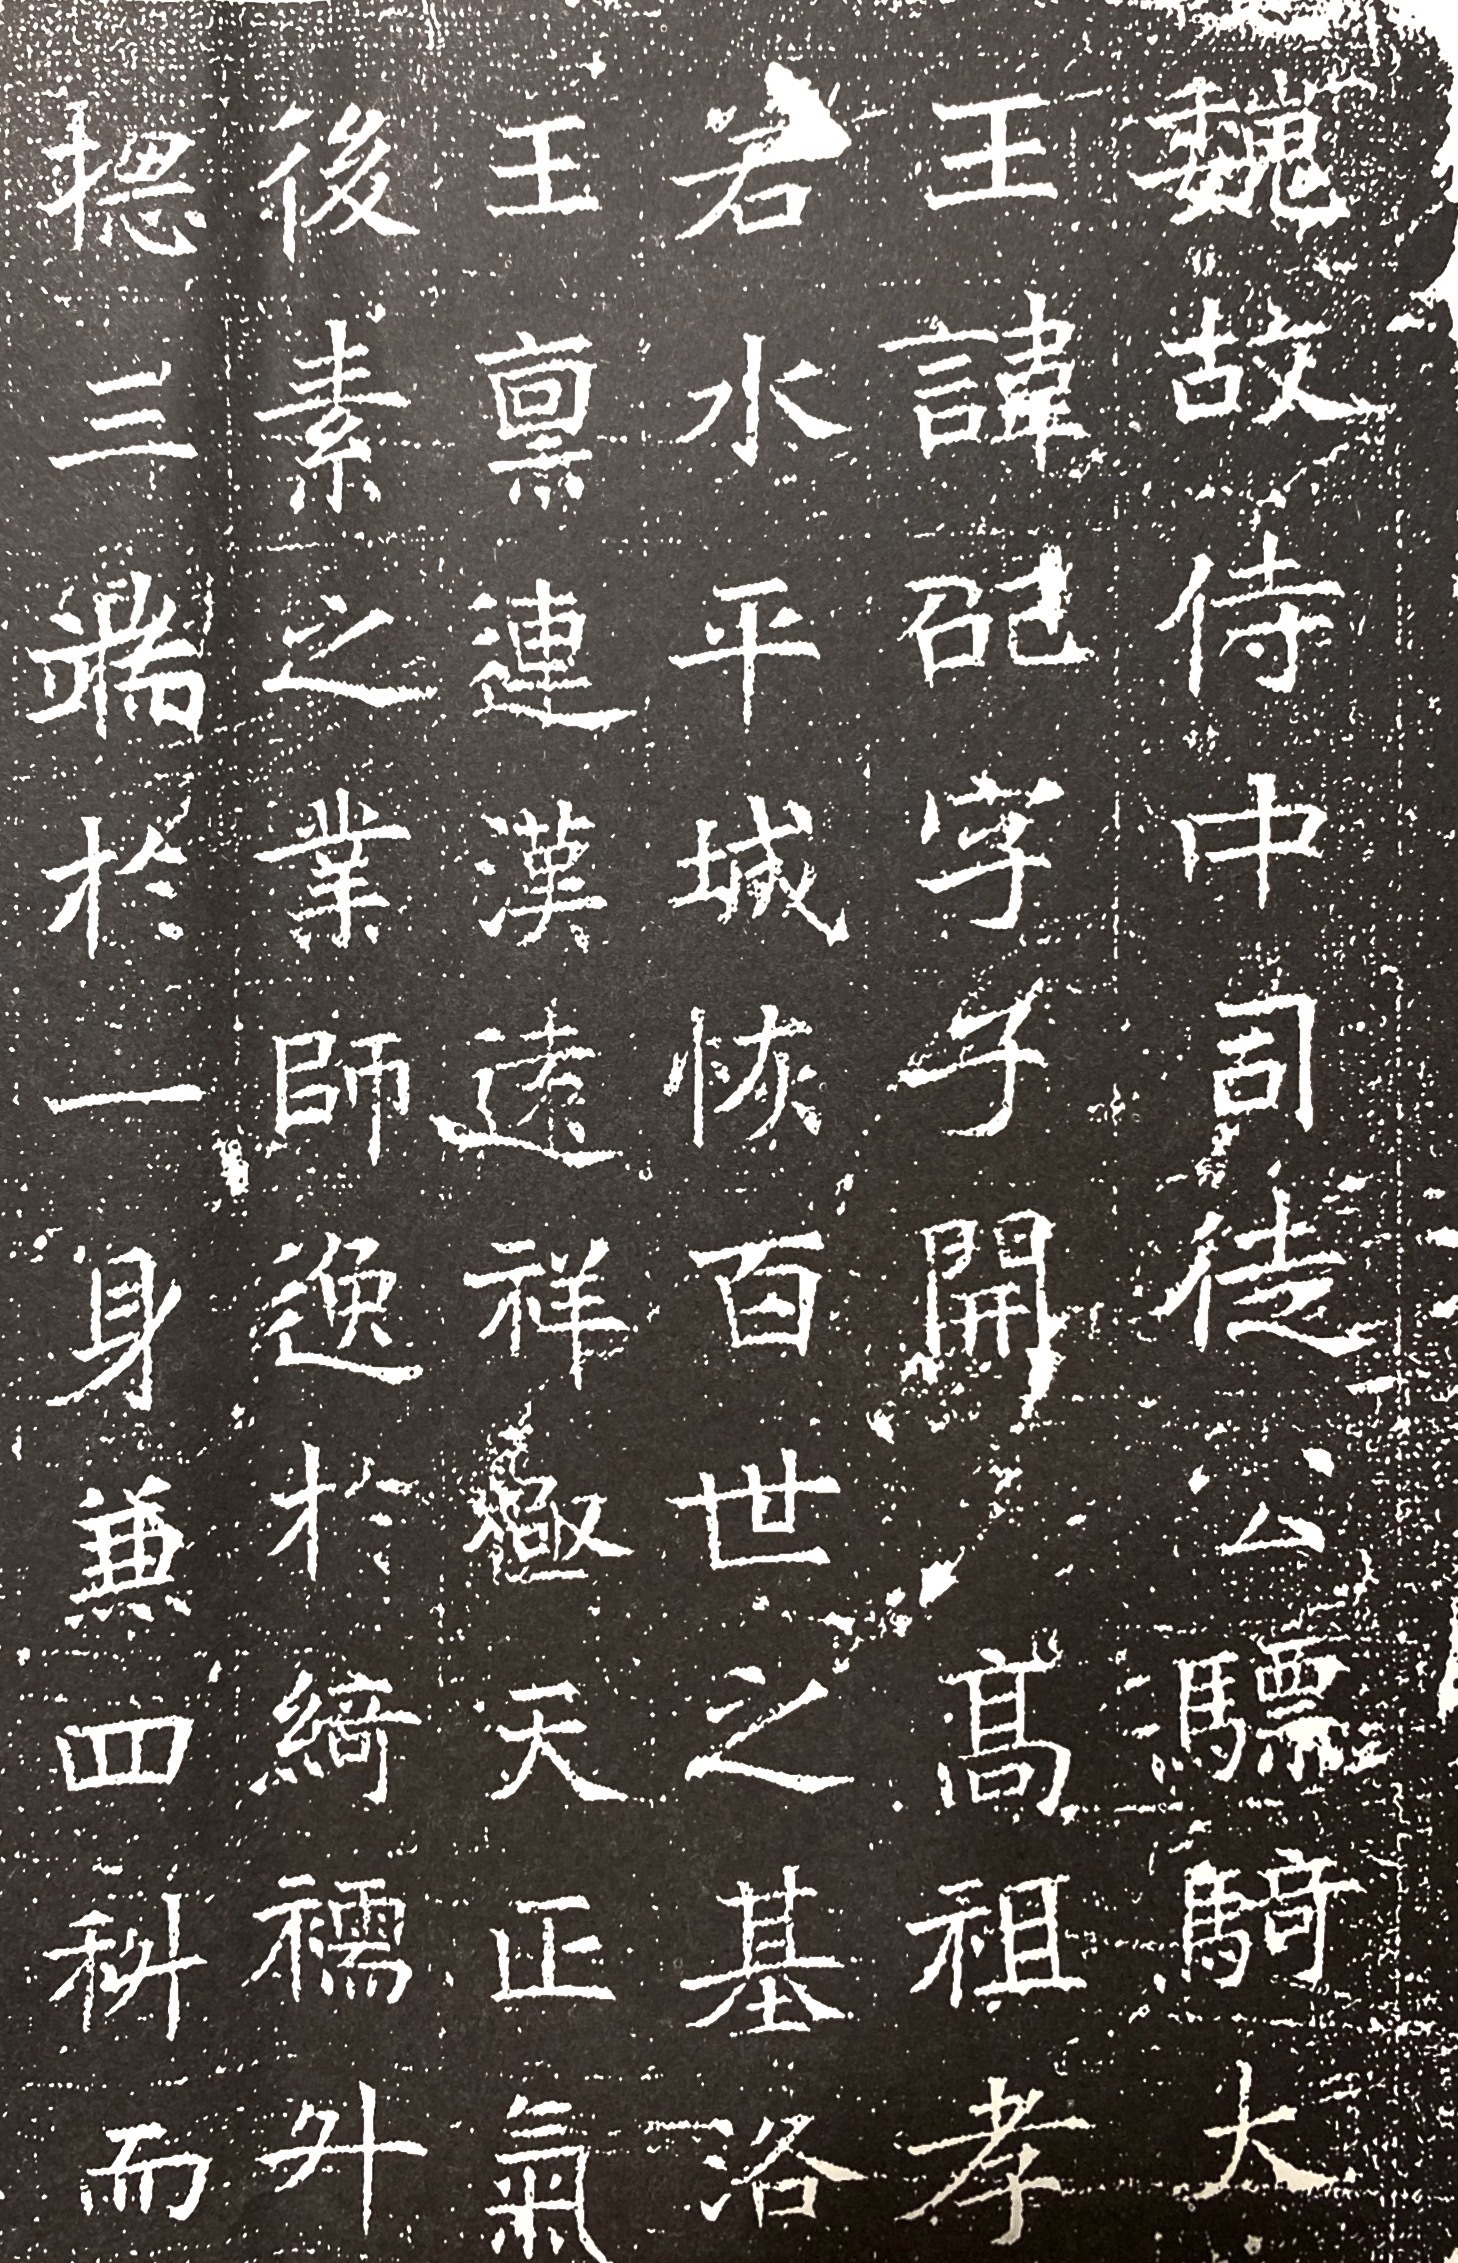 魏故侍中司徒公驃騎大
王諱卲字子開高祖孝
若水平城恢百世之基洛
王禀連漢遠祥極天正氣
後素之業師逸於綺襦升
揔三端於一身兼四科而